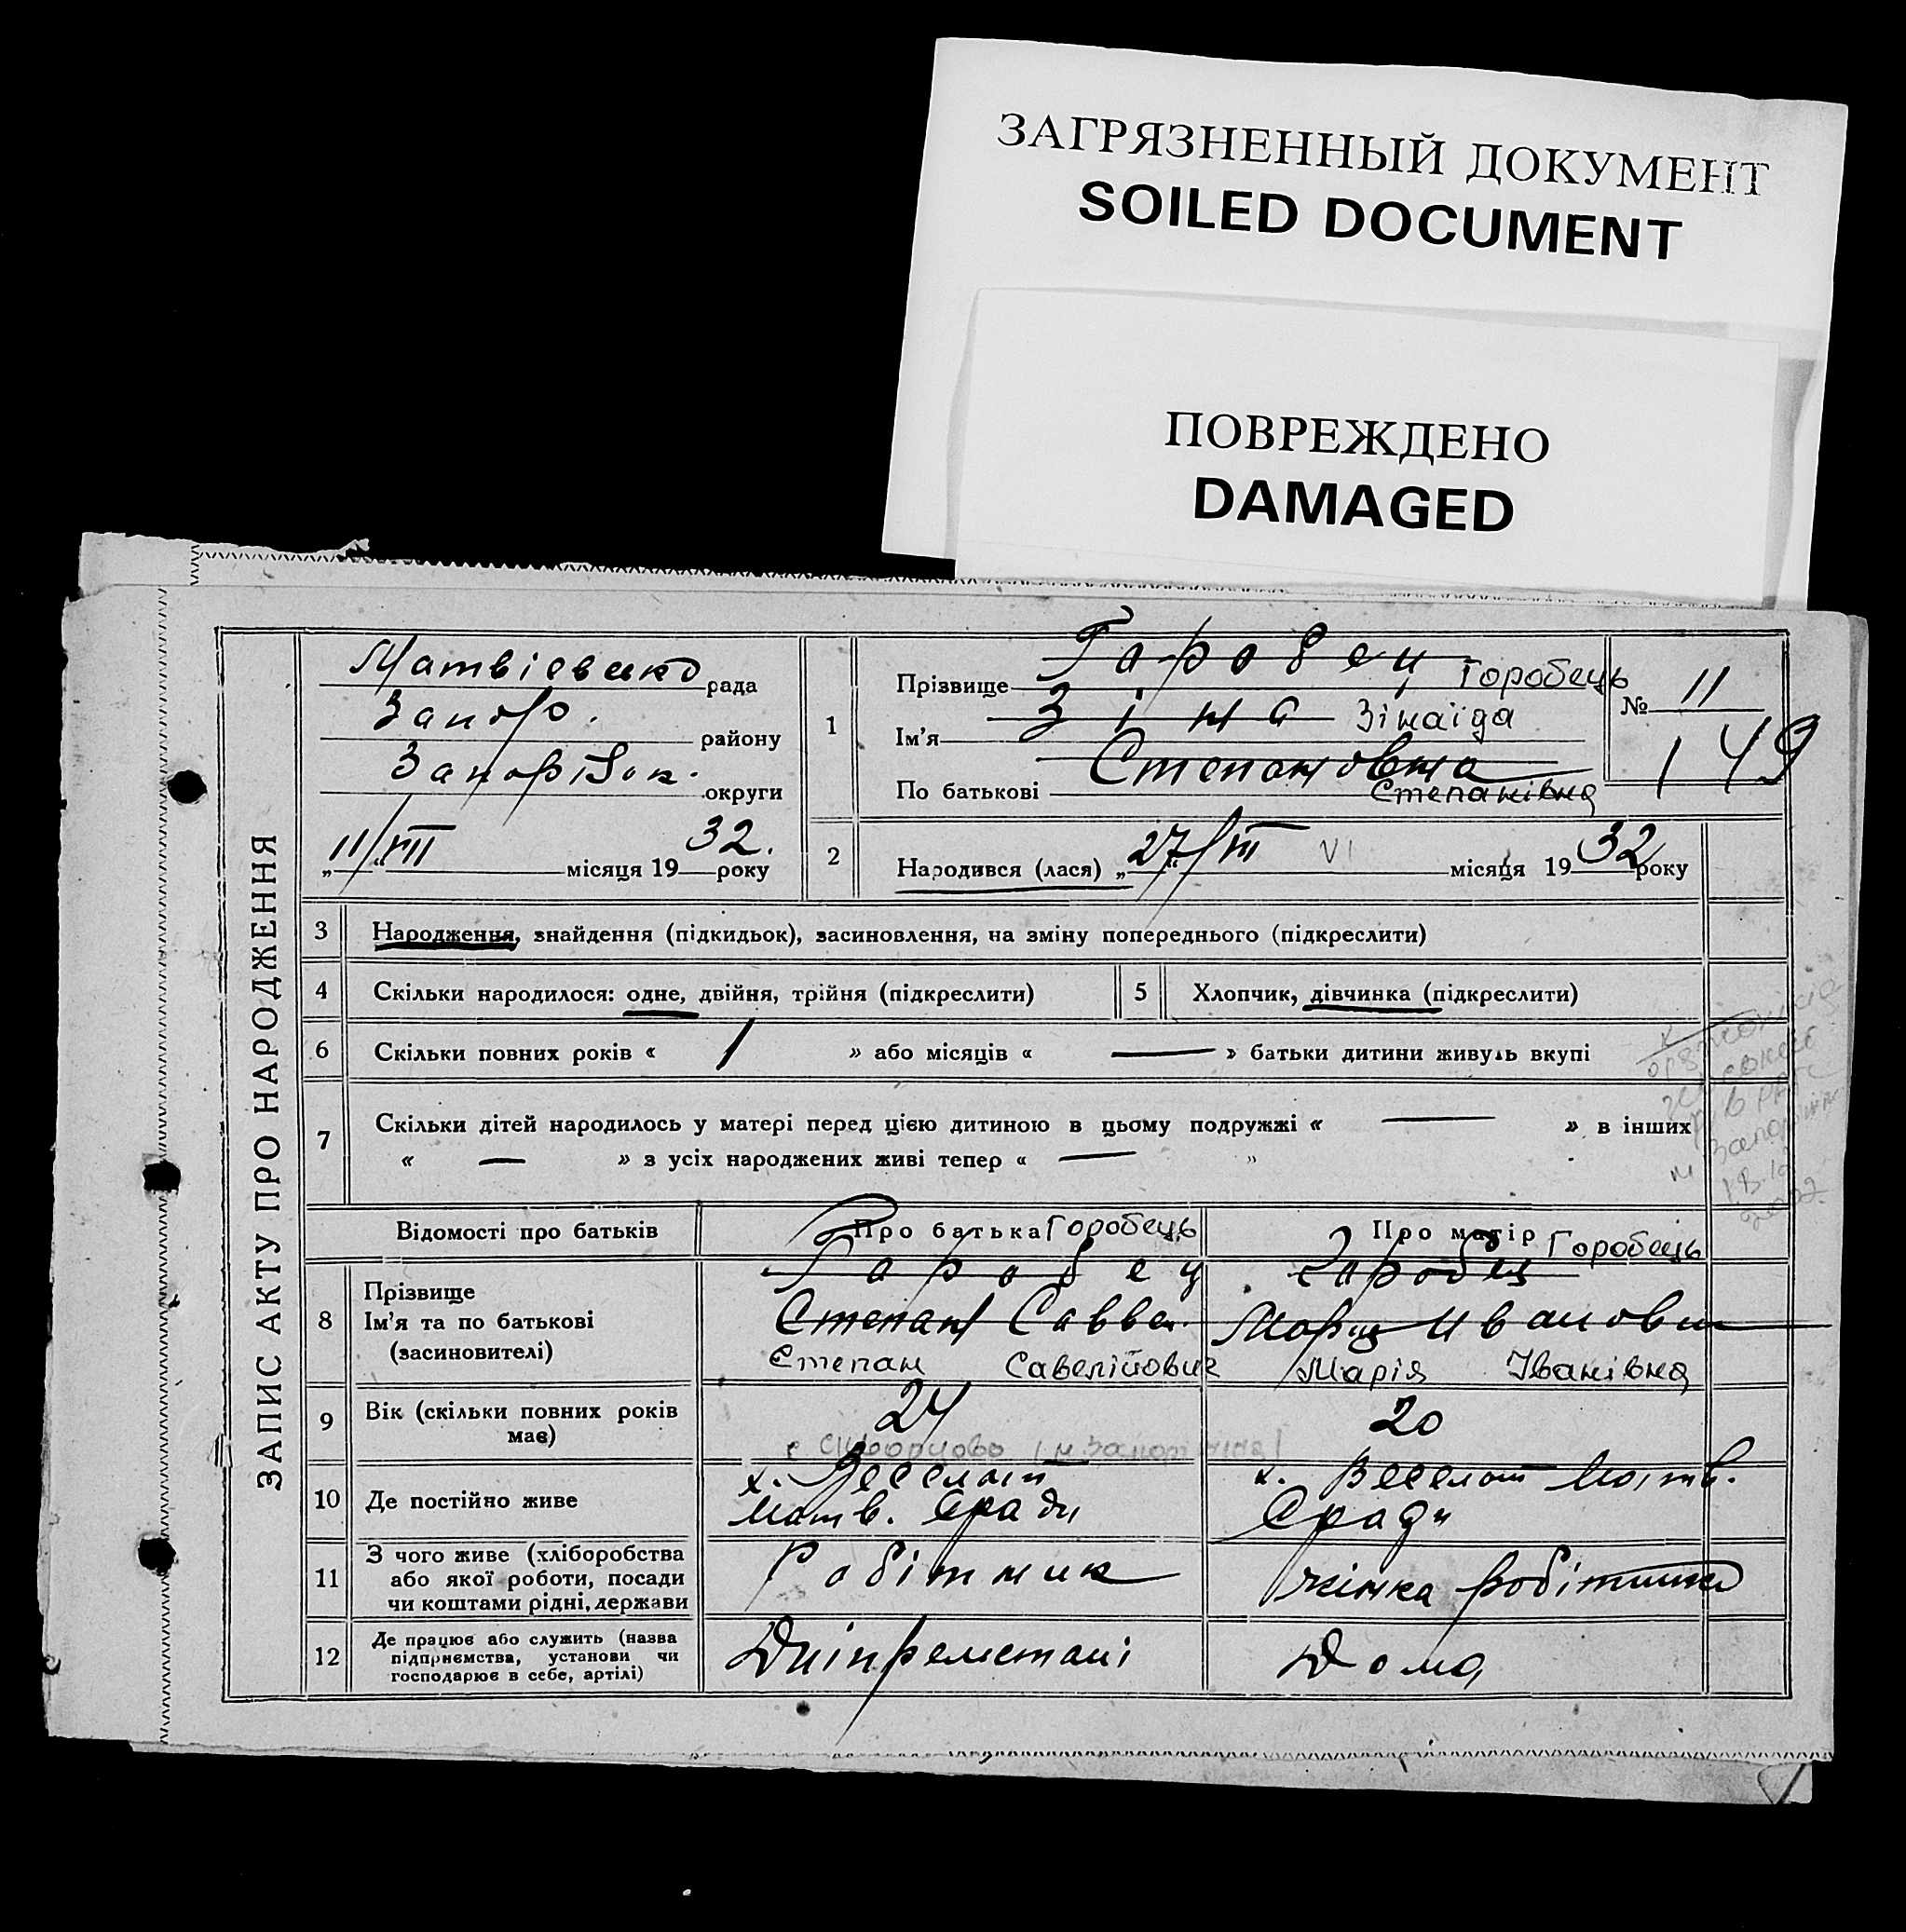 ЗАГРЯЗНЕННЫЙ ДОКУМЕНТ
SOILED DOCUMENT
ПОВРЕЖДЕНО
DAMAGED
ЗАПИС АКТУ ПРО НАРОДЖЕННЯ
Матвіевико рада
Запор. району
Запоріжк. округи
„11/VIII“ місяця 1932. року
1
Прізвище Горобец Горобець
Ім'я Зіна Зінаїда
По батькові Степановна
Степанівна
№ 11
149
2
Народився (лася) „27/VII“ VI місяця 1932 року
3 Народження, знайдення (підкидьок), засиновлення, на зміну попереднього (підкреслити)
4 Скільки народилося: одне, двійня, трійня (підкреслити) 5 Хлопчик, дівчинка (підкреслити)
6 Скільки повних років « 1 » або місяців « — » батьки дитини живуть вкупі
7 Скільки дітей народилось у матері перед цією дитиною в цьому подружжі « — » в інших
« — » з усіх народжених живі тепер « — »
Відомості про батьків Про батька Горобець Про матір Горобець
8 Прізвище
Ім'я та по батькові
(засиновителі)
Горобец
Степан Савве.
Степан Савелійович
Горобец
Мария Ивановн
Марія Іванівна
9 Вік (скільки повних років має) 24 20
10 Де постійно живе
х. Веселот
Матв. С/ради
х. Веселот Матв.
С/ради
11 З чого живе (хліборобства
або якої роботи, посади
чи коштами рідні, держави
Робітник
жінка робітника
12 Де працює або служить (назва
підприємства, установи чи
господарює в себе, артілі)
Дома